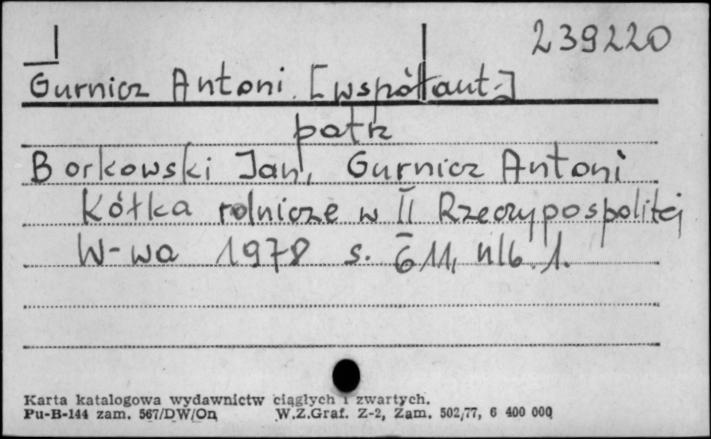 239220
Gurnicz Antoni. [współaut.]
patrz
Borkowski Jan, Gurnicz Antoni
Kółka rolnicze w II Rzeczypospolitej
W-wa 1978 s. 611, nlb. 1.
Karta katalogowa wydawnictw ciągłych i zwartych.
Pu-B-144 zam. 567/DW/On W.Z.Graf. Z-2, Zam. 502,77, 6 400 000